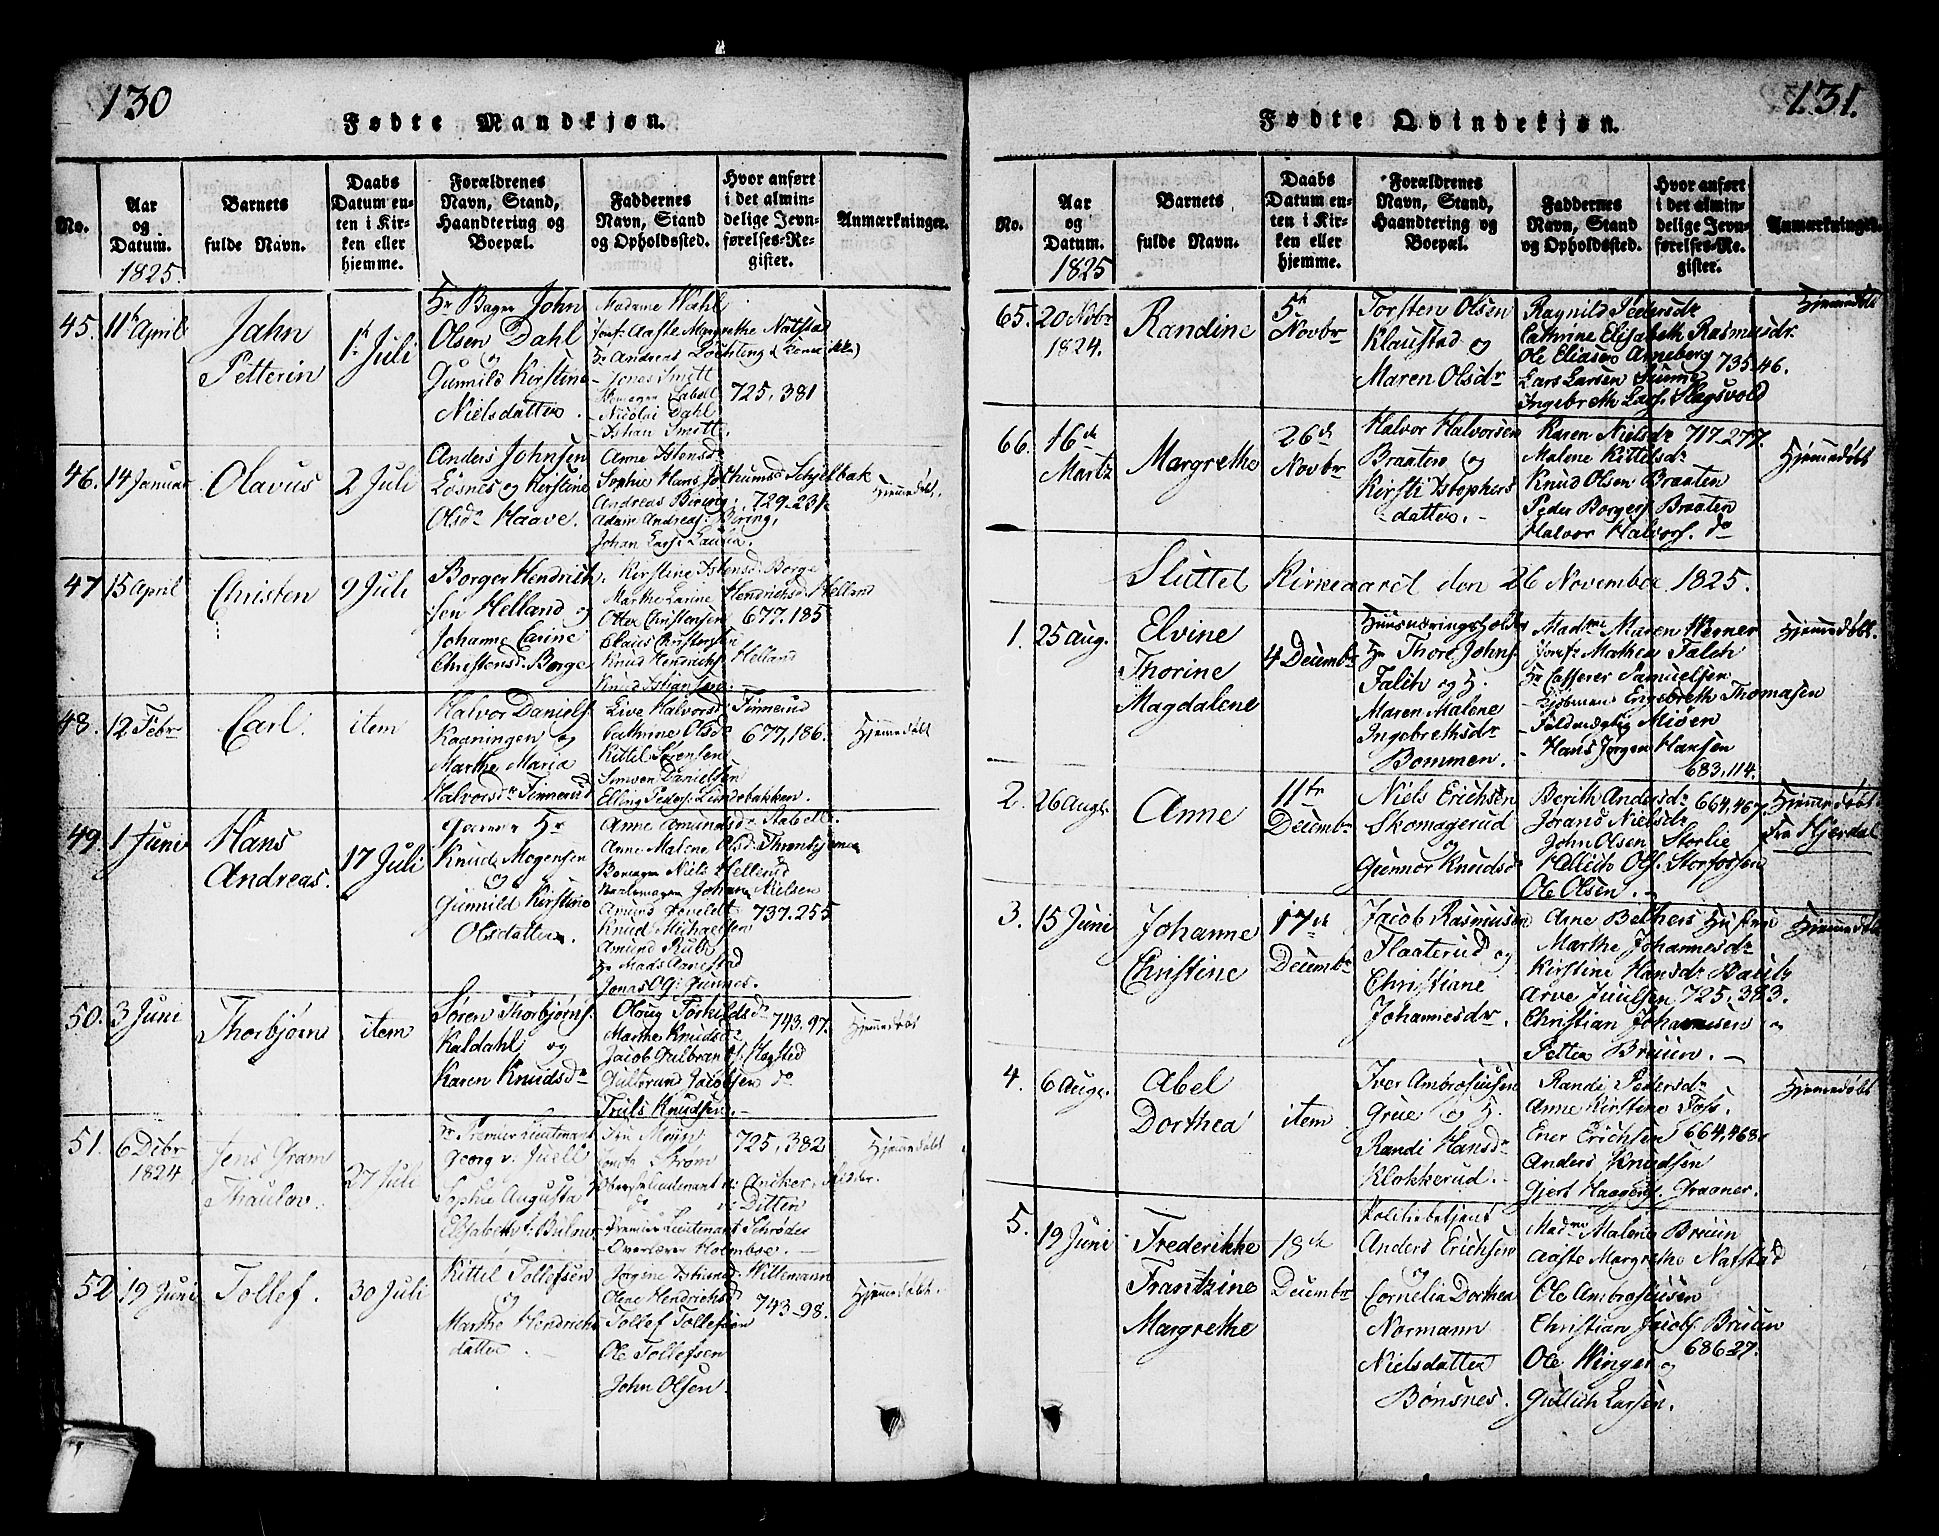 130
Fødte Mandkjøn.
No.
Aar
og
Datum.
1825.
Barnets
fulde Navn.
Daabs
Datum en-
ten i Kir-
ken eller
hjemme.
Forældrenes
Navn, Stand,
Haandtering og
Boepæl.
Faddernes
Navn, Stand
og Opholdssted.
Hvor anført
i det almin-
delige Jevn-
førelses-Re-
gister.
Anmærkninger.
45. 11te April
Jahn
Petterin
1te Juli
Hr Bager John
Olsen Dahl
og
Gunnild Kirstine
Nielsdatter.
Madame Wahl
Jomf. Aaste Margrethe Natstad
Hr Andreas
- Jonas Smitt
- Nicolai Dahl
- Johan Smitt.
725, 381
46. 14 Januar
Olavus
2 Juli
Anders Johnsen
Løsnes og Kirstine
Olsdr Haave.
Anne
Sophie Hans
Andreas Biering.
Adam Andreas: Biering,
Johan Lars:
729-231
Hjemmedøbt.
47 15 April
Christen
9 Juli
Borger Hendrich-
sen Helland og
Johanne Carine
Christensd: Borge
Kirstine Borge
Marthe Larine Hendrichsd: Helland
Otter Christensen
Claus Christensen
Knud Hendrichs: Helland
677.185
48. 12 Febr
Carl.
item
Halvor Daniels:
Kaaningen og
Marthe Maria
Halvorsdr Finnerud
Live Halvorsd: Finnerud
Cathrine Olsdr
Kittel Sørensen
Simen Danielsen
Elling Peders: Lundebakken.
677, 186.
Hjemmedøbt
49. 1 Juni
Hans
Andreas.
17 Juli
Hr
Knud Mogensen
og
Gunnild Kirstine
Olsdatter.
Anne Amundsdr
Anne Malene Olsd:
Niels Hellerud
Johan Nielsen
Amund
Knud Michaelsen
Amund Rud
Hr Mads
Jonas
737.255
50. 3 Juni
Thorbjørn
item
Søren Thorbjørns:
Kaldahl og
Karen Knudsdr
Oloug Torkildsdr
Marthe Knudsdr
Jacob Gulbrands: Hagsted
Gulbrand Jacobsen do
Truls Knudsen.
743.97.
Hjemmedøbt
51. 6 Decbr
1824
Jens Gram
Thaulov.
27 Juli
Hr Premier Lieutenant
Georg v. Juell
Sophie Augusta
Elisabeth f: Bulner
Fru
Strøm
Oberstlieutenant v: Ancker,
do v: Ditten
Premier Lieutenant Schrøder
- Overlærer Holmboe.
725, 382
Hjemmedøbt
52 19 Juni
Tollef.
30 Juli
Kittil Tollefsen
og
Marthe Hendrichs
datter.
Jørgine Willemann
Olene Hendrichsd
Tollef Tollefsen
Ole Tollefsen
John Olsen.
743-98.
Hjemmedøbt.
131.
Fødte Qvindekjøn.
No.
Aar
og
Datum.
1825
Barnets
fulde Navn.
Daabs
Datum en-
ten i Kir-
ken eller
hjemme.
Forældrenes
Navn, Stand,
Haandtering og
Boepæl.
Faddernes
Navn, Stand
og Opholdssted.
Hvor anført
i det almin-
delige Jevn-
førelses-Re-
gister.
Anmærkninger.
65. 20 Novbr
1824.
Randine
5te
Novbr
Torsten Olsen
Klaustad og
Maren Olsdr
Ragnild Pedersdr
Cathrine Elisabeth Rasmusdr.
Ole Eliasen Arneberg
Lars Larsen
Ingebreth Lars: Hagsvold
735.46.
Hjemmedøbt
66. 16de
Martz
Margrethe
26de
Novbr
Halvor Halvorsen
Braaten og
Kirsti Istophers
datter.
Karen Nielsdr
Malene Kittelsdr
Knud Olsen Braaten
Peder Borgers: Braaten
Halvor Halvors: do
717.277.
Hjemmedøbt
Sluttet Kirkeaaret den 26 November 1825.
1. 25 Aug.
Elvine
Thorine
Magdalene
4 Decembr
Huusnæringsholder
Hr Thore Johns:
Falch og H.
Maren Malene
Ingebrethsdr
Bommen.
Madme Maren Werner
Jomfr Mathea Falch
Hr Casserer Samuelsen
- Kjøbmand Engebreth Thomasen
- Fuldmægtig Miøen
- Hans Jørgen Hansen
683, 114.
Hjemmedøbt.
2. 26 Aug.
Anne
11te
Decembr
Niels Erichsen
Skomagerud
og
Gunnor Knudsd
Berith Andersdr
Jorand Nielsdr
John Olsen Storlie
Ols: Storfossen
Ole Olsen.
664,467.
Hjemmedøbt
fra Hjerdal
3. 15 Juni
Johanne
Christine
17de
Decembr
Jacob Rasmusen
Flaaterud og
Christiane
Johannesdr.
Arne Bethers Hustrue
Marthe Johannesdr
Kirstine Hansdr
Arve Juulsen
Christian Johannesen og
Petter Bruun.
725, 383.
Hjemmedøbt
4. 6 Aug.
Abel
Dorthea
item
Iver Ambrosiusen
Grue og H.
Randi Hansdr
Klokkerud.
Randi Pedersdr
Anne Kirstine Foss.
Ener Erichsen
Anders Knudsen
Gjert Haagens: Graaner.
664,468.
Hjemmedøbt
5. 19 Juni
Frederikke
Frantzine
Margrethe
18de
Decembr
Politiebetjent
Anders Erichsen
og
Cornelia Dorthea
Normann
Nielsdatter
Bønsnes.
Madme Malene Bruun
Aaste Margrethe Natstad
Ole Ambrosiusen
Christian Jacobs: Bruun
Ole Winger og
Gullich Larsen.
686.27.